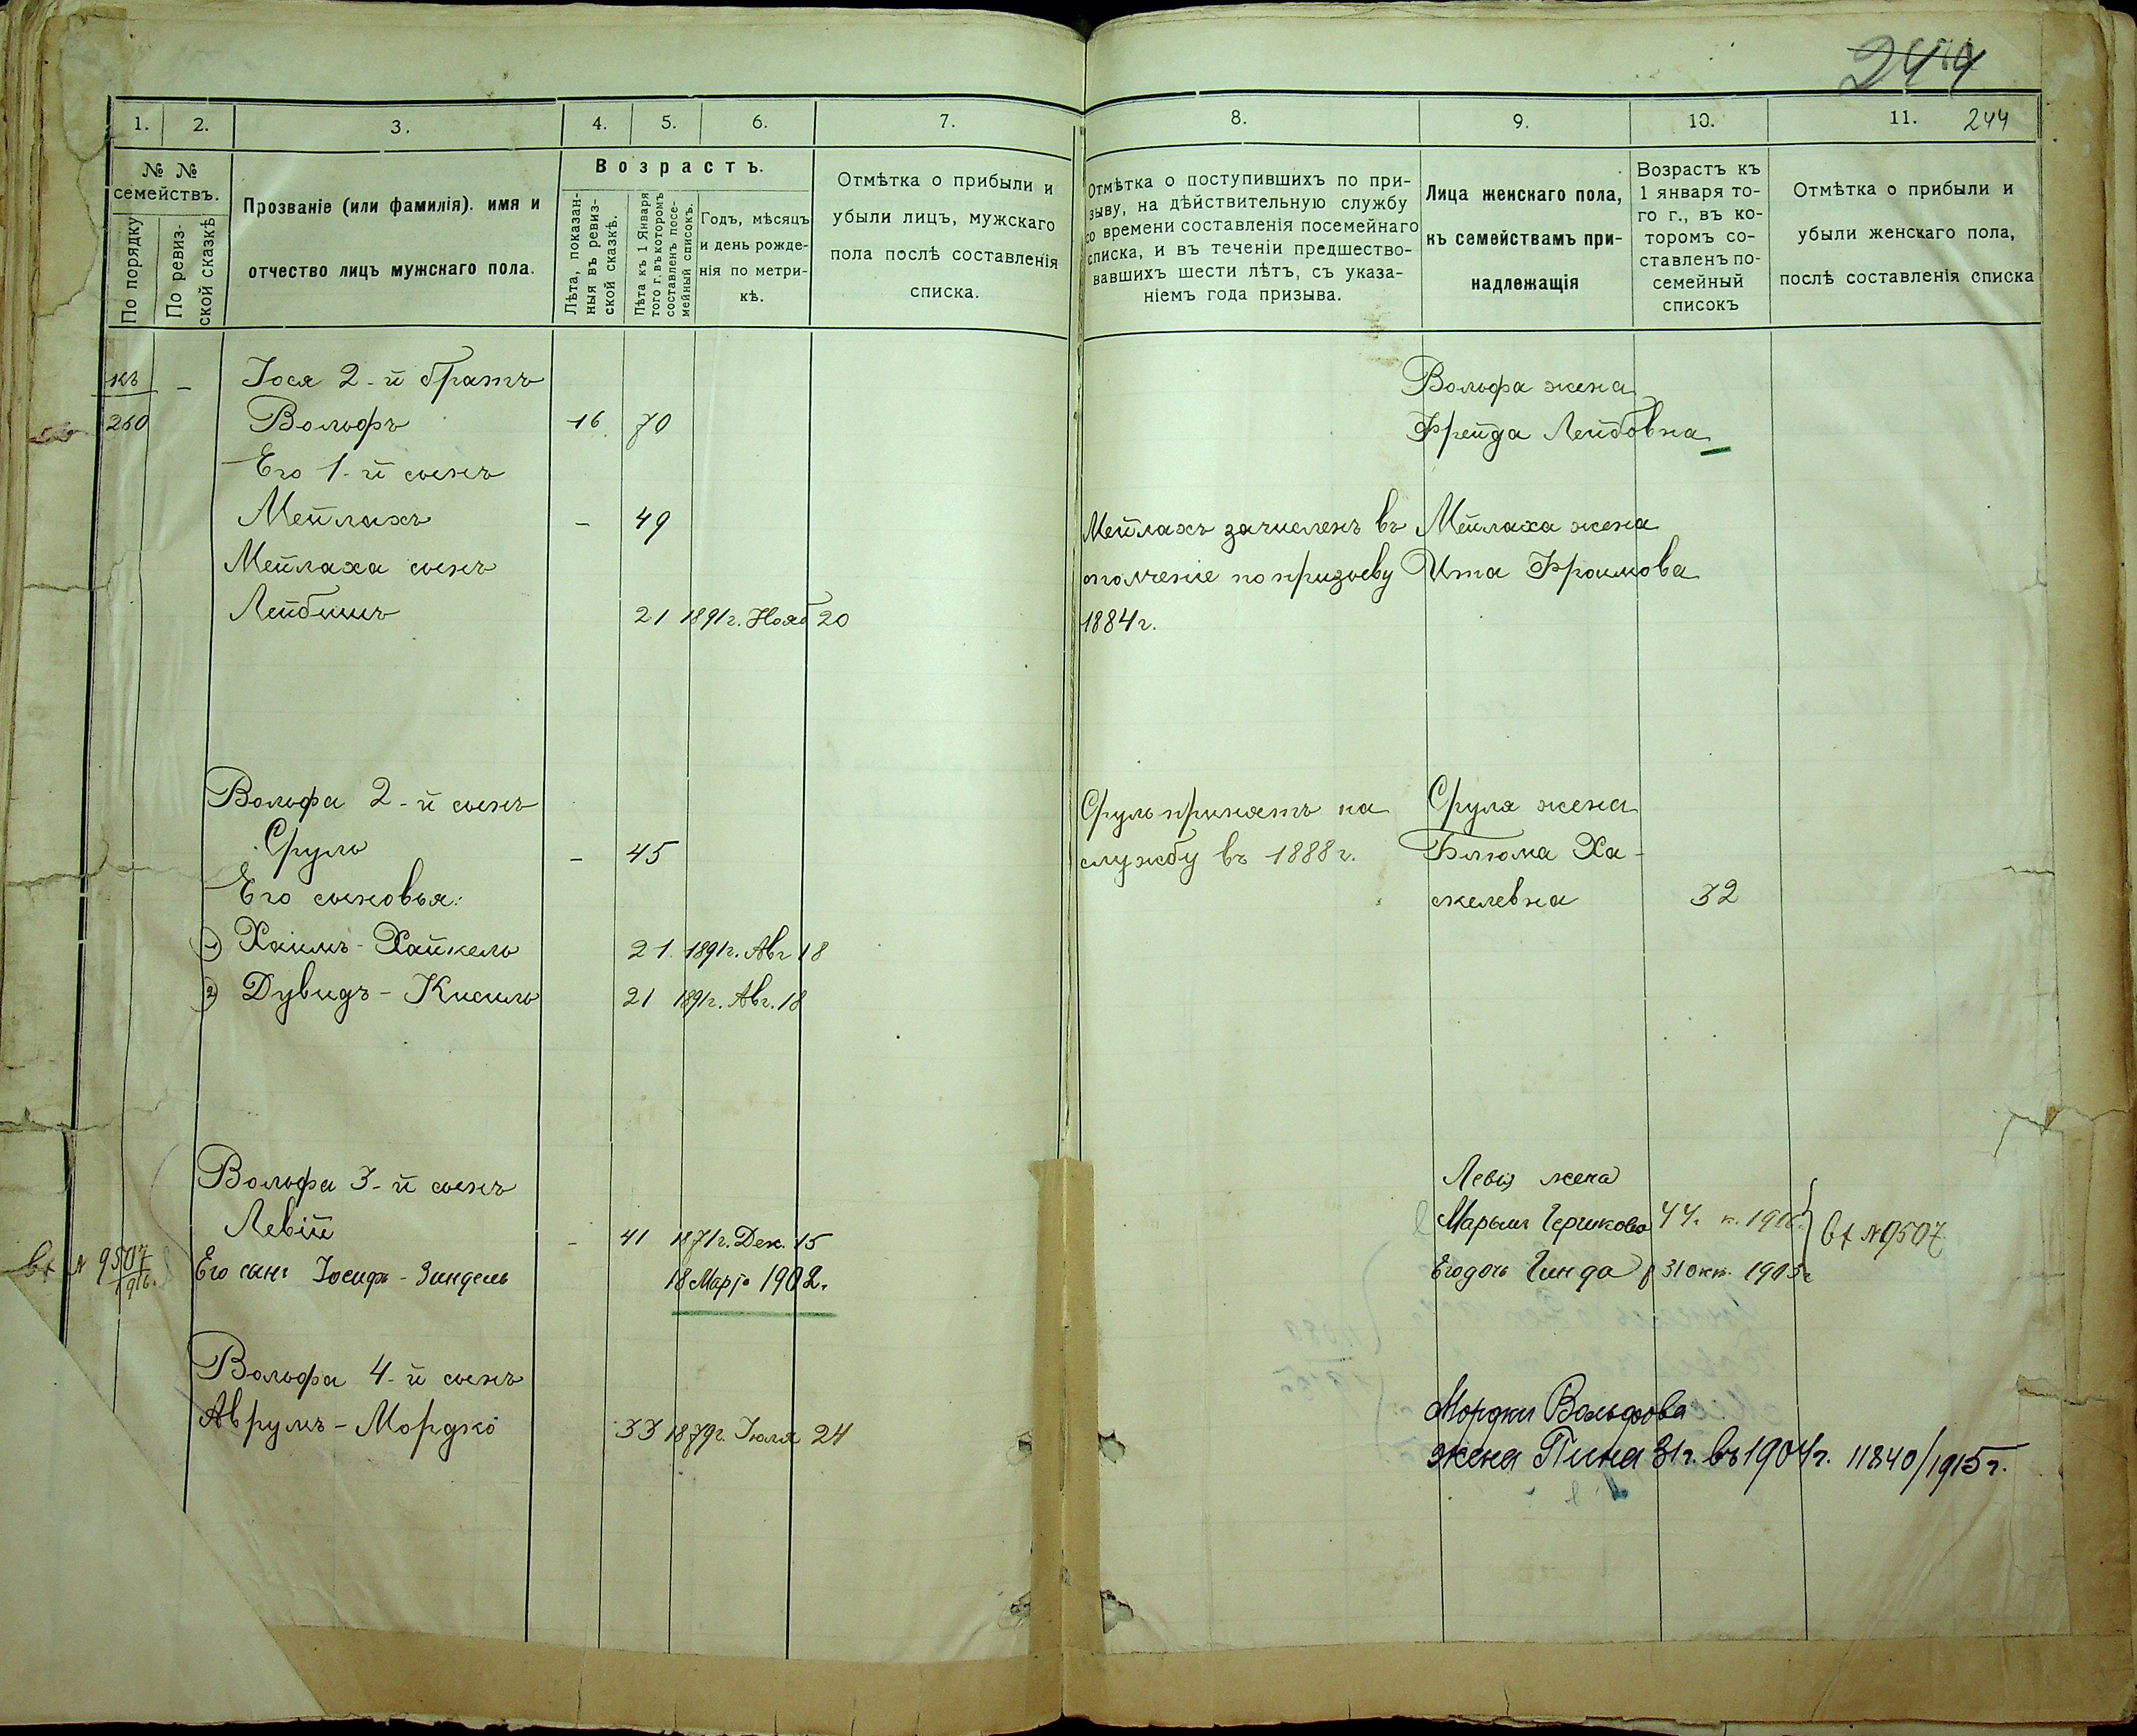 244
1.
2.
3.
4.
5.
6.
7.
8.
9.
10.
11.
244
№ №
семействъ.
По порядку
По ревиз-
ской сказкѣ
Прозваніе (или фамилія). имя и
отчество лицъ мужскаго пола.
Возрастъ.
Лѣта, показан-
ныя въ ревиз-
ской сказкѣ.
Лѣта къ 1 Января
того г. въ которомъ
составленъ посе-
мейный списокъ.
Годъ, мѣсяцъ
и день рожде-
нія по метри-
кѣ.
Отмѣтка о прибыли и
убыли лицъ, мужскаго
пола послѣ составленія
списка.
Отмѣтка о поступившихъ по при-
зыву, на дѣйствительную службу
со времени составленія посемейнаго
списка, и въ теченіи предшество-
вавшихъ шести лѣтъ, съ указа-
ніемъ года призыва.
Лица женскаго пола,
къ семействамъ при-
надлежащія
Возрастъ къ
1 января то-
го г., въ ко-
торомъ со-
ставленъ по-
семейный
списокъ
Отмѣтка о прибыли и
убыли женскаго пола,
послѣ составленія списка
къ - Іося 2-й братъ
260 Вольфъ 16 70
Его 1-й сынъ
Мейлахъ - 49
Мейлаха сынъ
Лейбишъ 21 1891 г. Нояб 20
Вольфа 2-й сынъ
Сруль - 45
Его сыновья:
1) Хаимъ-Хайкель 21 1891 г. Авг 18
2) Дувидъ-Кисиль 21 1891 г. Авг. 18
Вольфа 3-й сынъ
Левій - 41 1871 г. Дек. 15
№ 9507/1916 Его сынъ Іосифъ-Зиндель 18 Марта 1902 г.
Вольфа 4-й сынъ
Аврумъ-Мордко 33 1879 г. Іюля 24
Вольфа жена
Фрейда Лейбовна
Мейлахъ зачисленъ въ
ополченіе по призыву
1884 г.
Мейлаха жена
Ита Фроимова
Сруль принятъ на
службу въ 1888 г.
Сруля жена
Блюма Ха-
скелевна 32
Левія жена
Марьим Гершкова 44 г. к. 1916 г.
Его дочь Гинда р 31 окт. 1905 г
вх № 9507
Мордки Вольфова
жена Пина 31 г. въ 1904 г. 11840/1915 г.